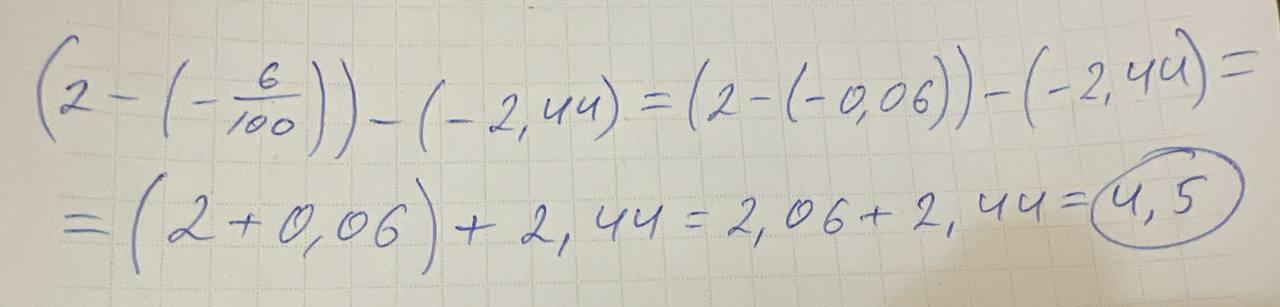 (2 - (- 6/100)) - (- 2,44) = (2 - (- 0,06)) - (- 2,44) =
= (2 + 0,06) + 2,44 = 2,06 + 2,44 = 4,5